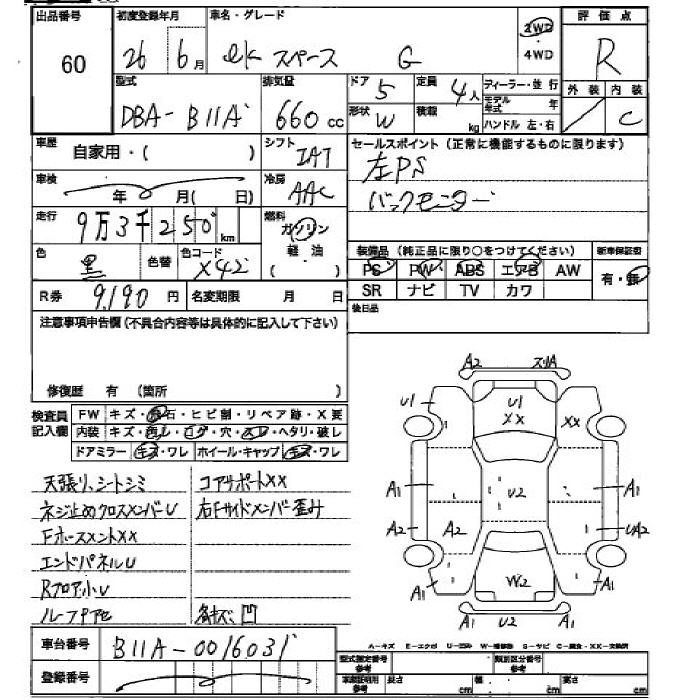 出品番号 初度登録年月 車名・グレード 評価点
60 26 6月 ekスペース G 2WD ・ 4WD R
型式 排気量 ドア 定員 ディーラー・並行 外装 内装
DBA-B11A 660cc 5 4人 モデル年式 年 C
形状 W 積載 kg ハンドル 左・右
車歴 自家用・( ) シフト IAT セールスポイント (正常に機能するものに限ります)
左PS
車検 年 月( 日) 冷房 AAC バックモニター
走行 9万3千250km 燃料 ガソリン・軽油 ( )
色 黒 色替 色コード X42 装備品 (純正品に限り○をつけてください) 新車保証書
PS PW ABS エアB AW 有・無
R券 9,190円 名変期限 月 日 SR ナビ TV カワ
注意事項申告欄(不具合内容等は具体的に記入して下さい) 後日品
修復歴 有 (箇所 )
検査員記入欄 FW キズ・飛石・ヒビ割・リペア跡・X要
内装 キズ・汚レ・コゲ・穴・スレ・ヘタリ・破レ
ドアミラー キズ・ワレ ホイール・キャップ キズ・ワレ
天張り、シートシミ コアサポートXX
ネジ止めクロスメンバーU 右Fサイドメンバー歪み
FホースメントXX
エンドパネルU
Rフロア小U
ルーフ 各キズ凹
A2 スリA
U1 U1 XX XX
A1 U2 A1
A2 A2 UA2
A1 W2 A1
A1 U2 A1
車台番号 B11A-0016031
A-キズ E-エクボ U-凹み W-補修跡 S-サビ C-腐食・XX-交換済
登録番号 型式指定番号 参考 類別区分番号 参考
車庫証明用 参考 長さ cm 幅 cm 高さ cm